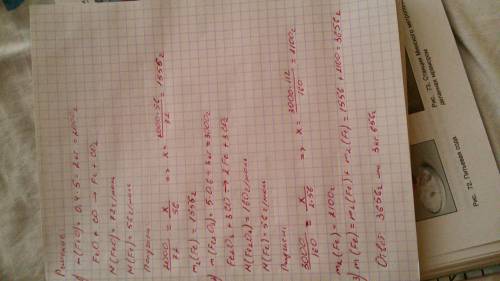 Решение
1) m(FeO) = 0,4·5 = 2кг = 2000г
FeO + CO → Fe + CO₂
M(FeO) = 72 г/моль
M(Fe) = 56 г/моль
Получим
2000/72 = x/56 => x = 2000·56/72 = 1556г
m₁(Fe) = 1556г
2) m(Fe₂O₃) = 5·0,6 = 3кг = 3000г
Fe₂O₃ + 3CO → 2Fe + 3CO₂
M(Fe₂O₃) = 160 г/моль
M(Fe) = 56 г/моль
3000/160 = x/2·56 => x = 3000·112/160 = 2100г
m₂(Fe) = 2100г
3) m(Fe) = m₁(Fe) + m₂(Fe) = 1556 + 2100 = 3656г
Ответ: 3656г
Рис. 72. Питьевая сода
Рис. 73. Станция Минского метрополитена,